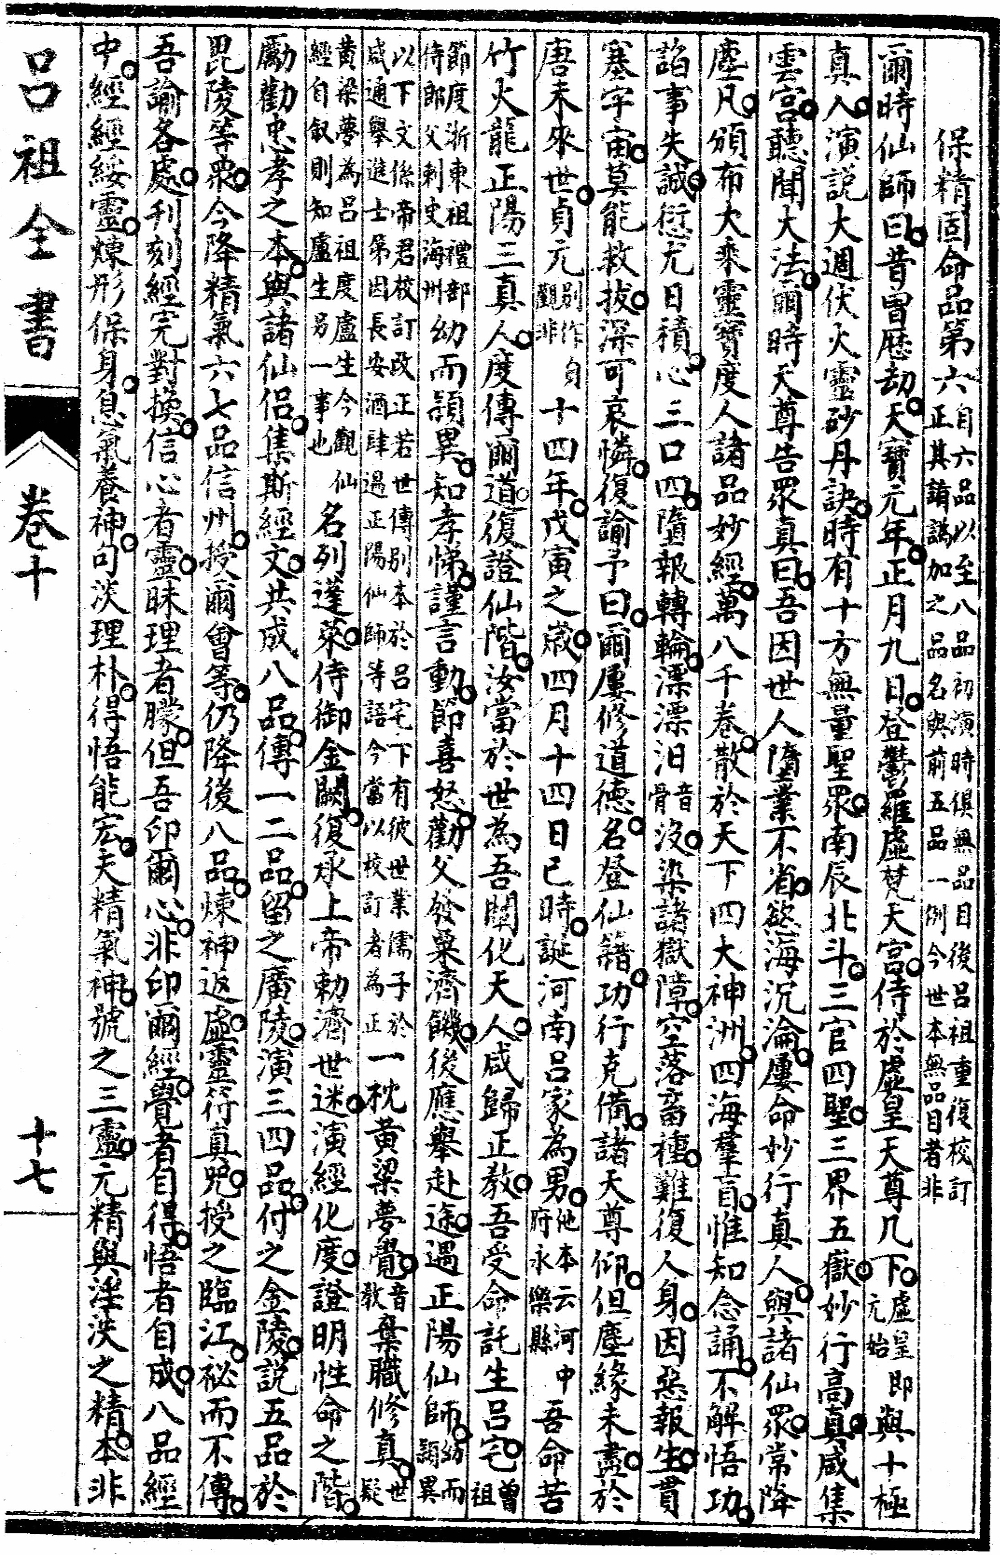 保精固命品第六自六品以至八品初演時俱無品目後呂祖重復校訂正其錯譌加之品名與前五品一例今世本無品目者非
爾時仙師曰昔曾歷劫天寶元年正月九日登鬱羅虛梵天宮侍於虛皇天尊几下虛皇即元始與十極
真人演說大週伏火靈砂丹訣時有十方無量聖眾南辰北斗三官四聖三界五嶽妙行高真咸集
雲宮聽聞大法爾時天尊告眾真曰吾因世人墮業不省慾海沉淪屢命妙行真人與諸仙眾常降
塵凡頒布大乘靈寶度人諸品妙經萬八千卷散於天下四大神洲四海羣盲惟知念誦不解悟功
諂事失誠衍尤日積心三口四墮報轉輪漂漂汨音骨沒染諸獄障空落畜種難復人身因惡報生貫
塞宇宙莫能救拔深可哀憐復諭予曰爾屢修道德名登仙籍功行克備諸天尊仰但塵緣未盡於
唐末來世貞元別作貞觀非十四年戊寅之歲四月十四日巳時誕河南呂家為男他本云河中府永樂縣吾命苦
竹火龍正陽三真人度傳爾道復證仙階汝當於世為吾闡化天人咸歸正教吾受命託生呂宅曾祖
節度浙東祖禮部侍郎父刺史海州幼而頴異知孝悌謹言動節喜怒勸父發粟濟饑後應舉赴途遇正陽仙師幼而頴異
以下文係帝君校訂改正若世傳別本於呂宅下有彼世業儒子於咸通舉進士第因長安酒肆遇正陽仙師等語今當以校訂者為正一枕黃粱夢覺音教棄職修真世疑
黃粱夢為呂祖度盧生今觀仙經自叙則知盧生另一事也名列蓬萊侍御金闕復承上帝勅濟世迷演經化度證明性命之階
勵勸忠孝之本與諸仙侶集斯經文共成八品傳一二品留之廣陵演三四品付之金陵說五品於
毘陵等眾今降精氣六七品信州授爾曾等仍降後八品煉神返虛靈符真咒授之臨江祕而不傳
吾諭各處刊刻經完對換信心者靈昧理者朦但吾印爾心非印爾經覺者自得悟者自成八品經
中經經綏靈煉形保身息氣養神句淡理朴得悟能宏夫精氣神號之三靈元精與淫泆之精本非
呂祖全書
卷十
十七